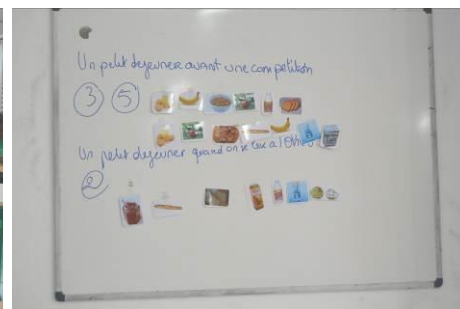 Un petit dejeuner avant une competition
3 5
Un petit dejeuner quand on se lève à 10h
2